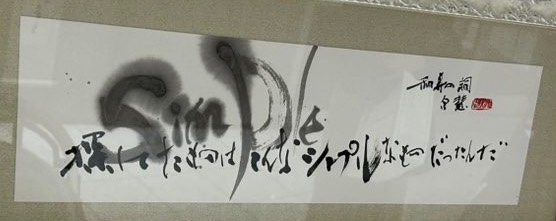 Simple
和寿の詞
探してた物はこんなシンプルなものだったんだ